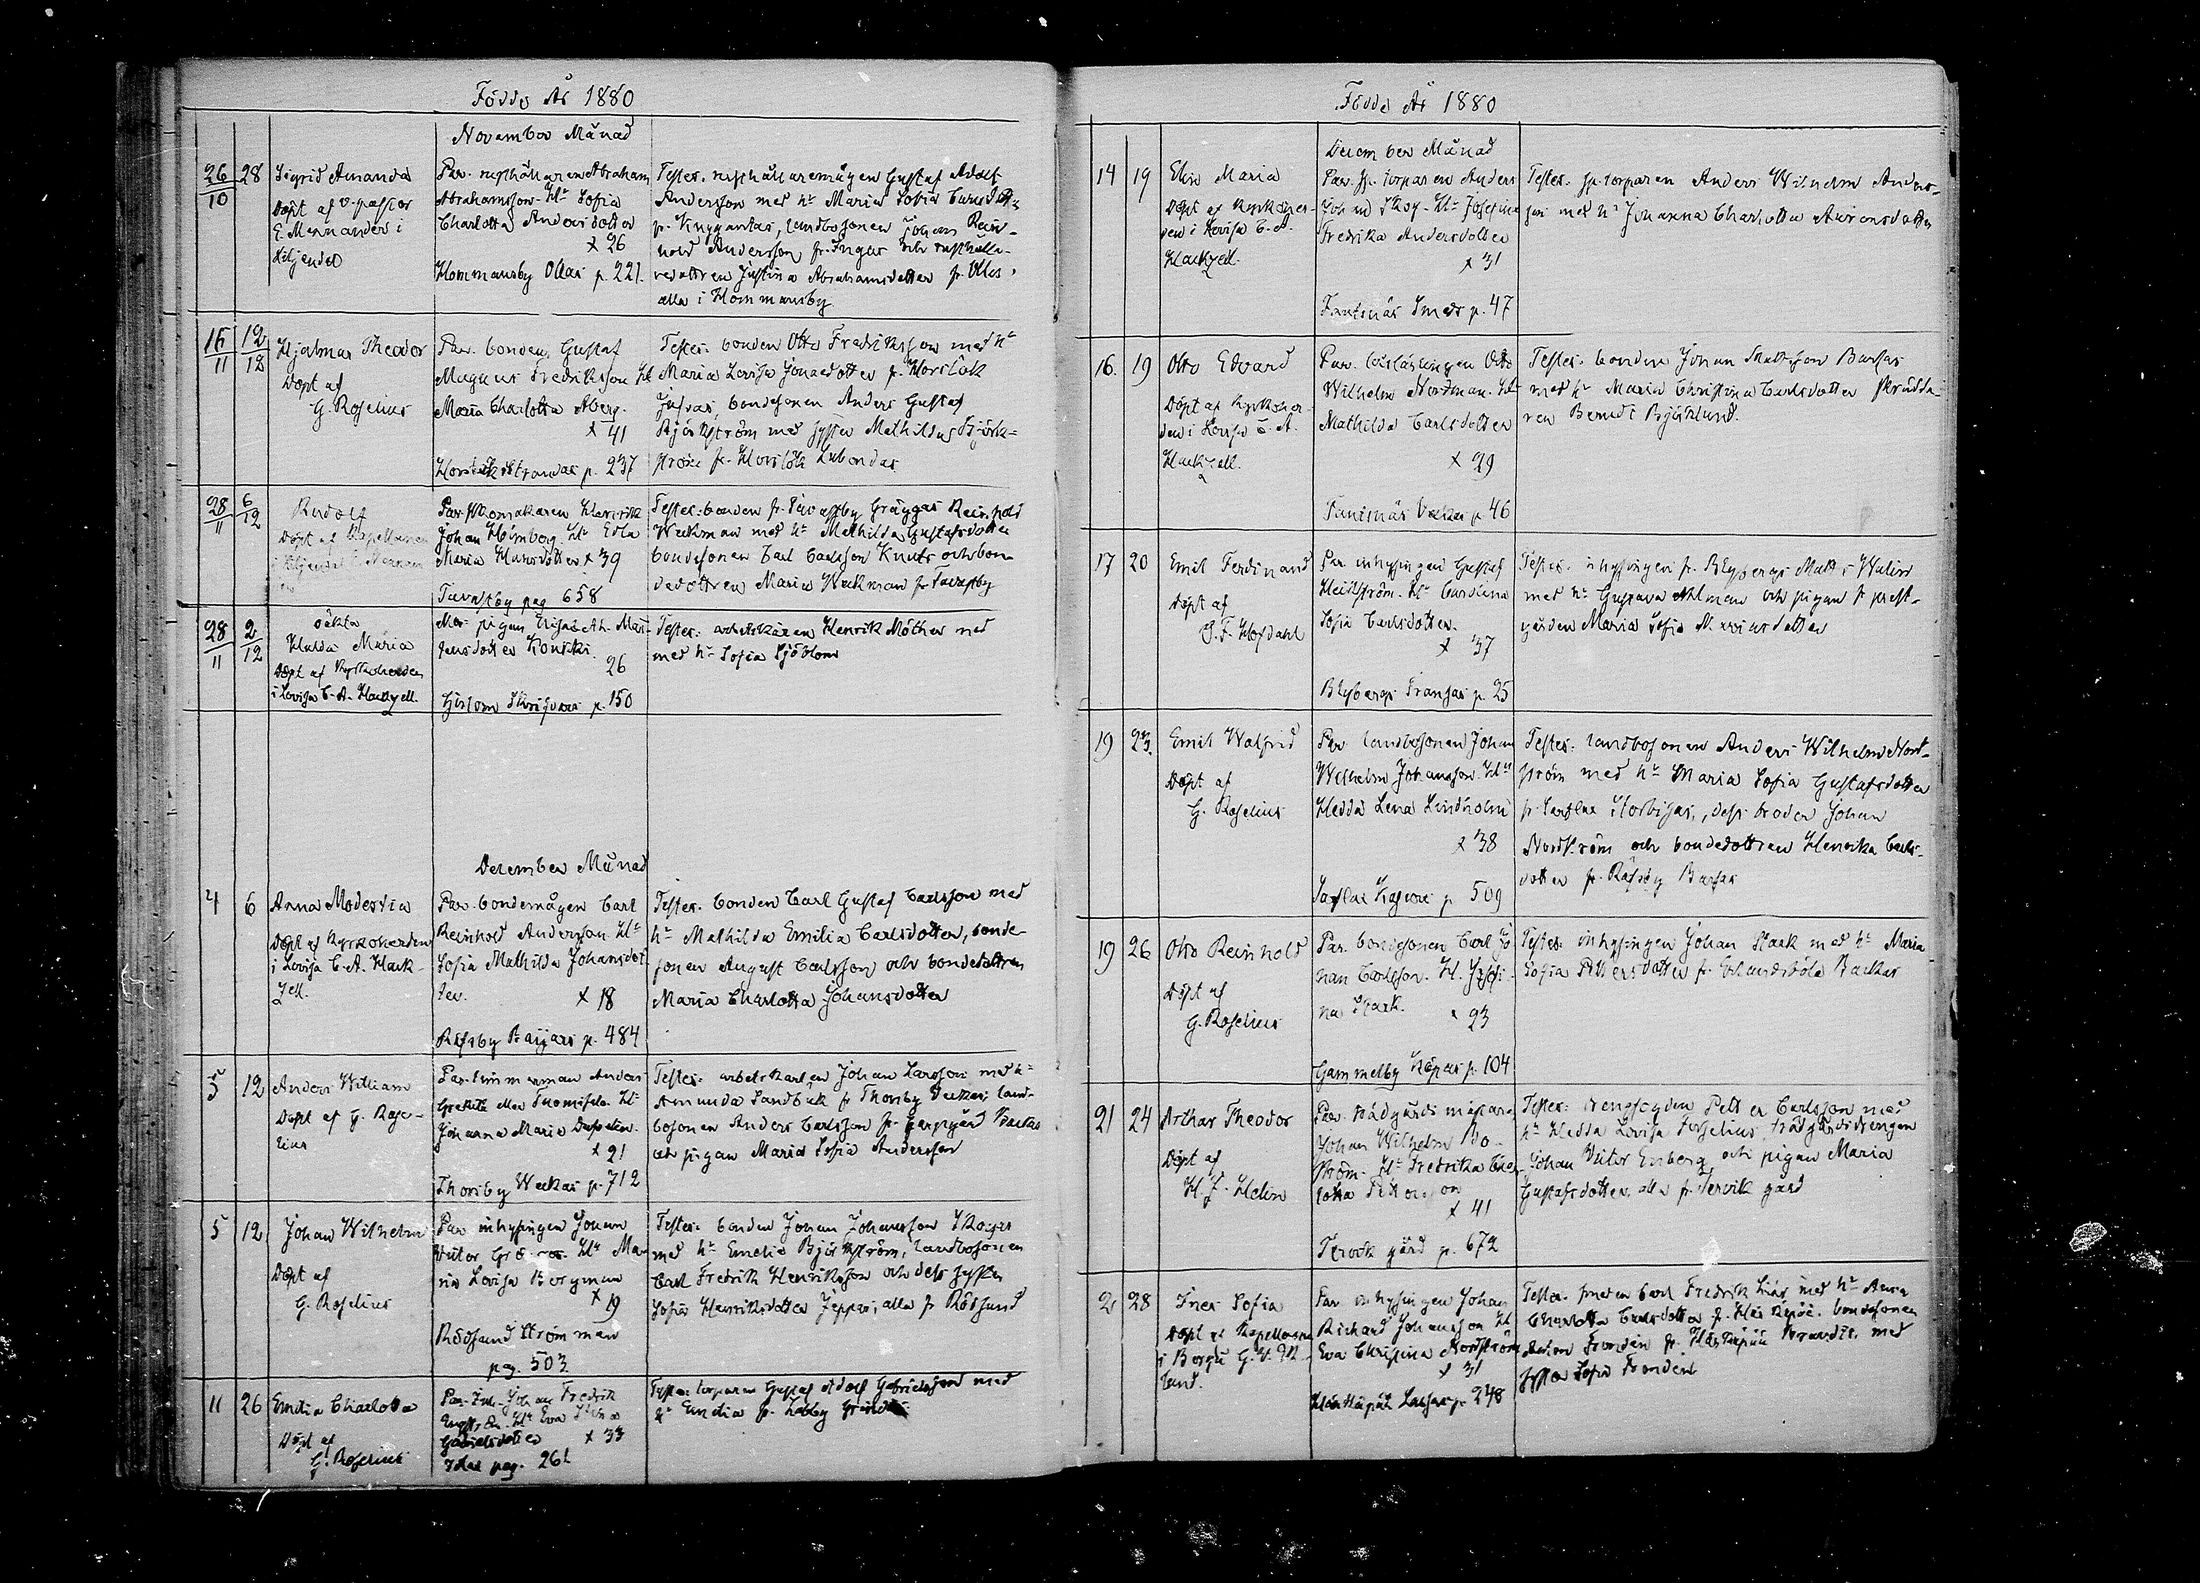 Födde År 1880
November Månad
26/10 28 Sigrid Amanda
Döpt af v. pastor
E. Mennander i
Liljendal
Par. rusthållaren Abraham
Abrahamsson Hu Sofia
Charlotta Andersdotter
x 26
Hommansby Ollas p. 221.
Testes. rusthållaremågen Gustaf Adolf
Andersson med hu Maria Sofia
fr. landbosonen Johan Rein-
hold Andersson fr. Ingas och rusthålla-
redottren Justina Abrahamsdotter fr. Ollas
alla i Hommansby
16/11 12/12 Hjalmar Theodor
Döpt af
G. Roselius
Par. bonden Gustaf
Magnus Fredriksson Hu
Maria Charlotta Åberg.
x 41
Horslök Strandas p. 237
Testes: bonden Otto Fredriksson med hu
Maria Lovisa Jonaedotter fr. Horslök
bondesonen Anders Gustaf
Björkström med syster Mathilda Björk-
ström fr. Horslök
28/11 6/12 Rudolf
Döpt af Kapellanen
i Liljendal
Par. Skomakaren Henrik
Johan Holmberg Hu Edla
Maria Hansdotter x 39
Tavastby pag 658
Testes. bonden fr. Tavastby Gräggas Reinhold
Weckman med hu Mathilda Gustafsdotter
bondesonen Carl Carlsson Knuts och bon-
dedottren Maria Weckman fr Tavastby
28/11 2/12 oäkta
Hulda Maria
Döpt af Kyrkoherden
i Lovisa C. A. Hackzell.
Mor: pigan
26
p. 150
Testes: arbetskaren Henrik Möther med
med hu Sofia Sjöblom
December Månad
4 6 Anna Modestia
Döpt af Kyrkoherden
i Lovisa C. A. Hack-
zell.
Par. bondemågen Carl
Reinhold Andersson Hu
Sofia Mathilda Johansdot-
ter. x 18
p. 484
Testes. bonden Carl Gustaf Carlsson med
hu Mathilda Emilia Carlsdotter, bonde-
sonen August Carlsson och bondedottren
Maria Charlotta Johansdotter
5 12 Anders William
Döpt af G. Rose-
lius
Par. timmerman Anders
Hu
Johanna Maria
x 21
Thorsby Weckas p. 712
Testes: arbetskarlen Johan Larsson med hu
Amanda Sandbäk fr Thorsby Veckas land-
bosonen Anders Carlsson fr.
och pigan Maria Sofia Andersson
5 12 Johan Wilhelm
Döpt af
G. Roselius
Par inhysingen Johan
Viktor Hu Ma-
ria Lovisa Bergman
x 19
Rödsund Strömman
pag. 503
Testes: bonden Johan Johansson Skogas
med hu Emelia Björkström, landbosonen
Carl Fredrik Henriksson och dess syster
Sofia Henriksdotter Jeppas, alla fr Rödsund
11 26 Emilia Charlotta
Döpt af
G. Roselius
Par. Johan Fredrik
Hu Eva
Gabrielsdotter x 33
pag. 261
Testes: torparen Gustaf Adolf Gabrielsson med
hu Emelia fr. Labby
Födde År 1880
December Månad
14 19 Elin Maria
Döpt af Kyrkoher-
den i Lovisa C. A.
Hackzell.
Par. sp. torparen Anders
Johan Skog Hu Josefina
Fredrika Andersdotter
x 31
p. 47
Testes. sp. torparen Anders Wilhelm Anders-
son med hu Johanna Charlotta Aaronsdotter
16. 19 Otto Edvard
Döpt af Kyrkoher-
den i Lovisa C. A.
Hackzell.
Par. Otto
Wilhelm Nordman Hu
Mathilda Carlsdotter
x 29
p. 46
Testes. bonden Johan Mattsson Bursas
med hu Maria Christina Carlsdotter skrädda-
ren Berndt Björklund.
17 20 Emil Ferdinand
Döpt af
G. F. Hofdahl
Par inhysingen Gustaf
Hellström Hu Carolina
Sofia Carlsdotter.
x 37
Blybergs Fransas p. 25
Testes. inhysingen fr. Blybergs Matts Walin
med hu Gustava Ahlman och pigan fr prest-
gården Maria Sofia
19 23. Emil Walfrid
Döpt af
G. Roselius
Par landbosonen Johan
Wilhelm Johansson Hu
Hedda Lena Lindholm
x 38
p 509
Testes. landbosonen Anders Wilhelm Nord-
ström med hu Maria Sofia Gustafsdotter
fr. dess broder Johan
Nordström och bondedottren Henrika Carls-
dotter fr.
19 26 Otto Reinhold
Döpt af
G. Roselius
Par. bondesonen Carl Jo-
han Carlsson. H. Josefi-
na Stark.
x 23
Gammelby Köpas p. 104
Testes: inhysingen Johan Stark med hu Maria
Sofia Pettersdotter fr. Backas
21 24 Arthur Theodor
Döpt af
H. J. Helin
Par. trädgårdsmästaren
Johan Wilhelm Bo-
ström Hu Fredrika Char-
lotta Pettersson
x 41
Tervik gård p. 672
Testes: drengfogden Petter Carlsson med
hu Hedda Lovisa Forselius, trädgårdsdrengen
Johan Viktor Enberg och pigan Maria
Gustafsdotter, alla fr. Tervik gård
2 28 Ines Sofia
Döpt af Kapellanen
i Borgå
Par inhysingen Johan
Richard Johansson Hu
Eva Christina Nordström
x 31
p. 248
Testes. smeden Carl Fredrik med hu Anna
Charlotta Carlsdotter fr. bondesonen
Anton Frondén fr. med
syster Sofia Frondén